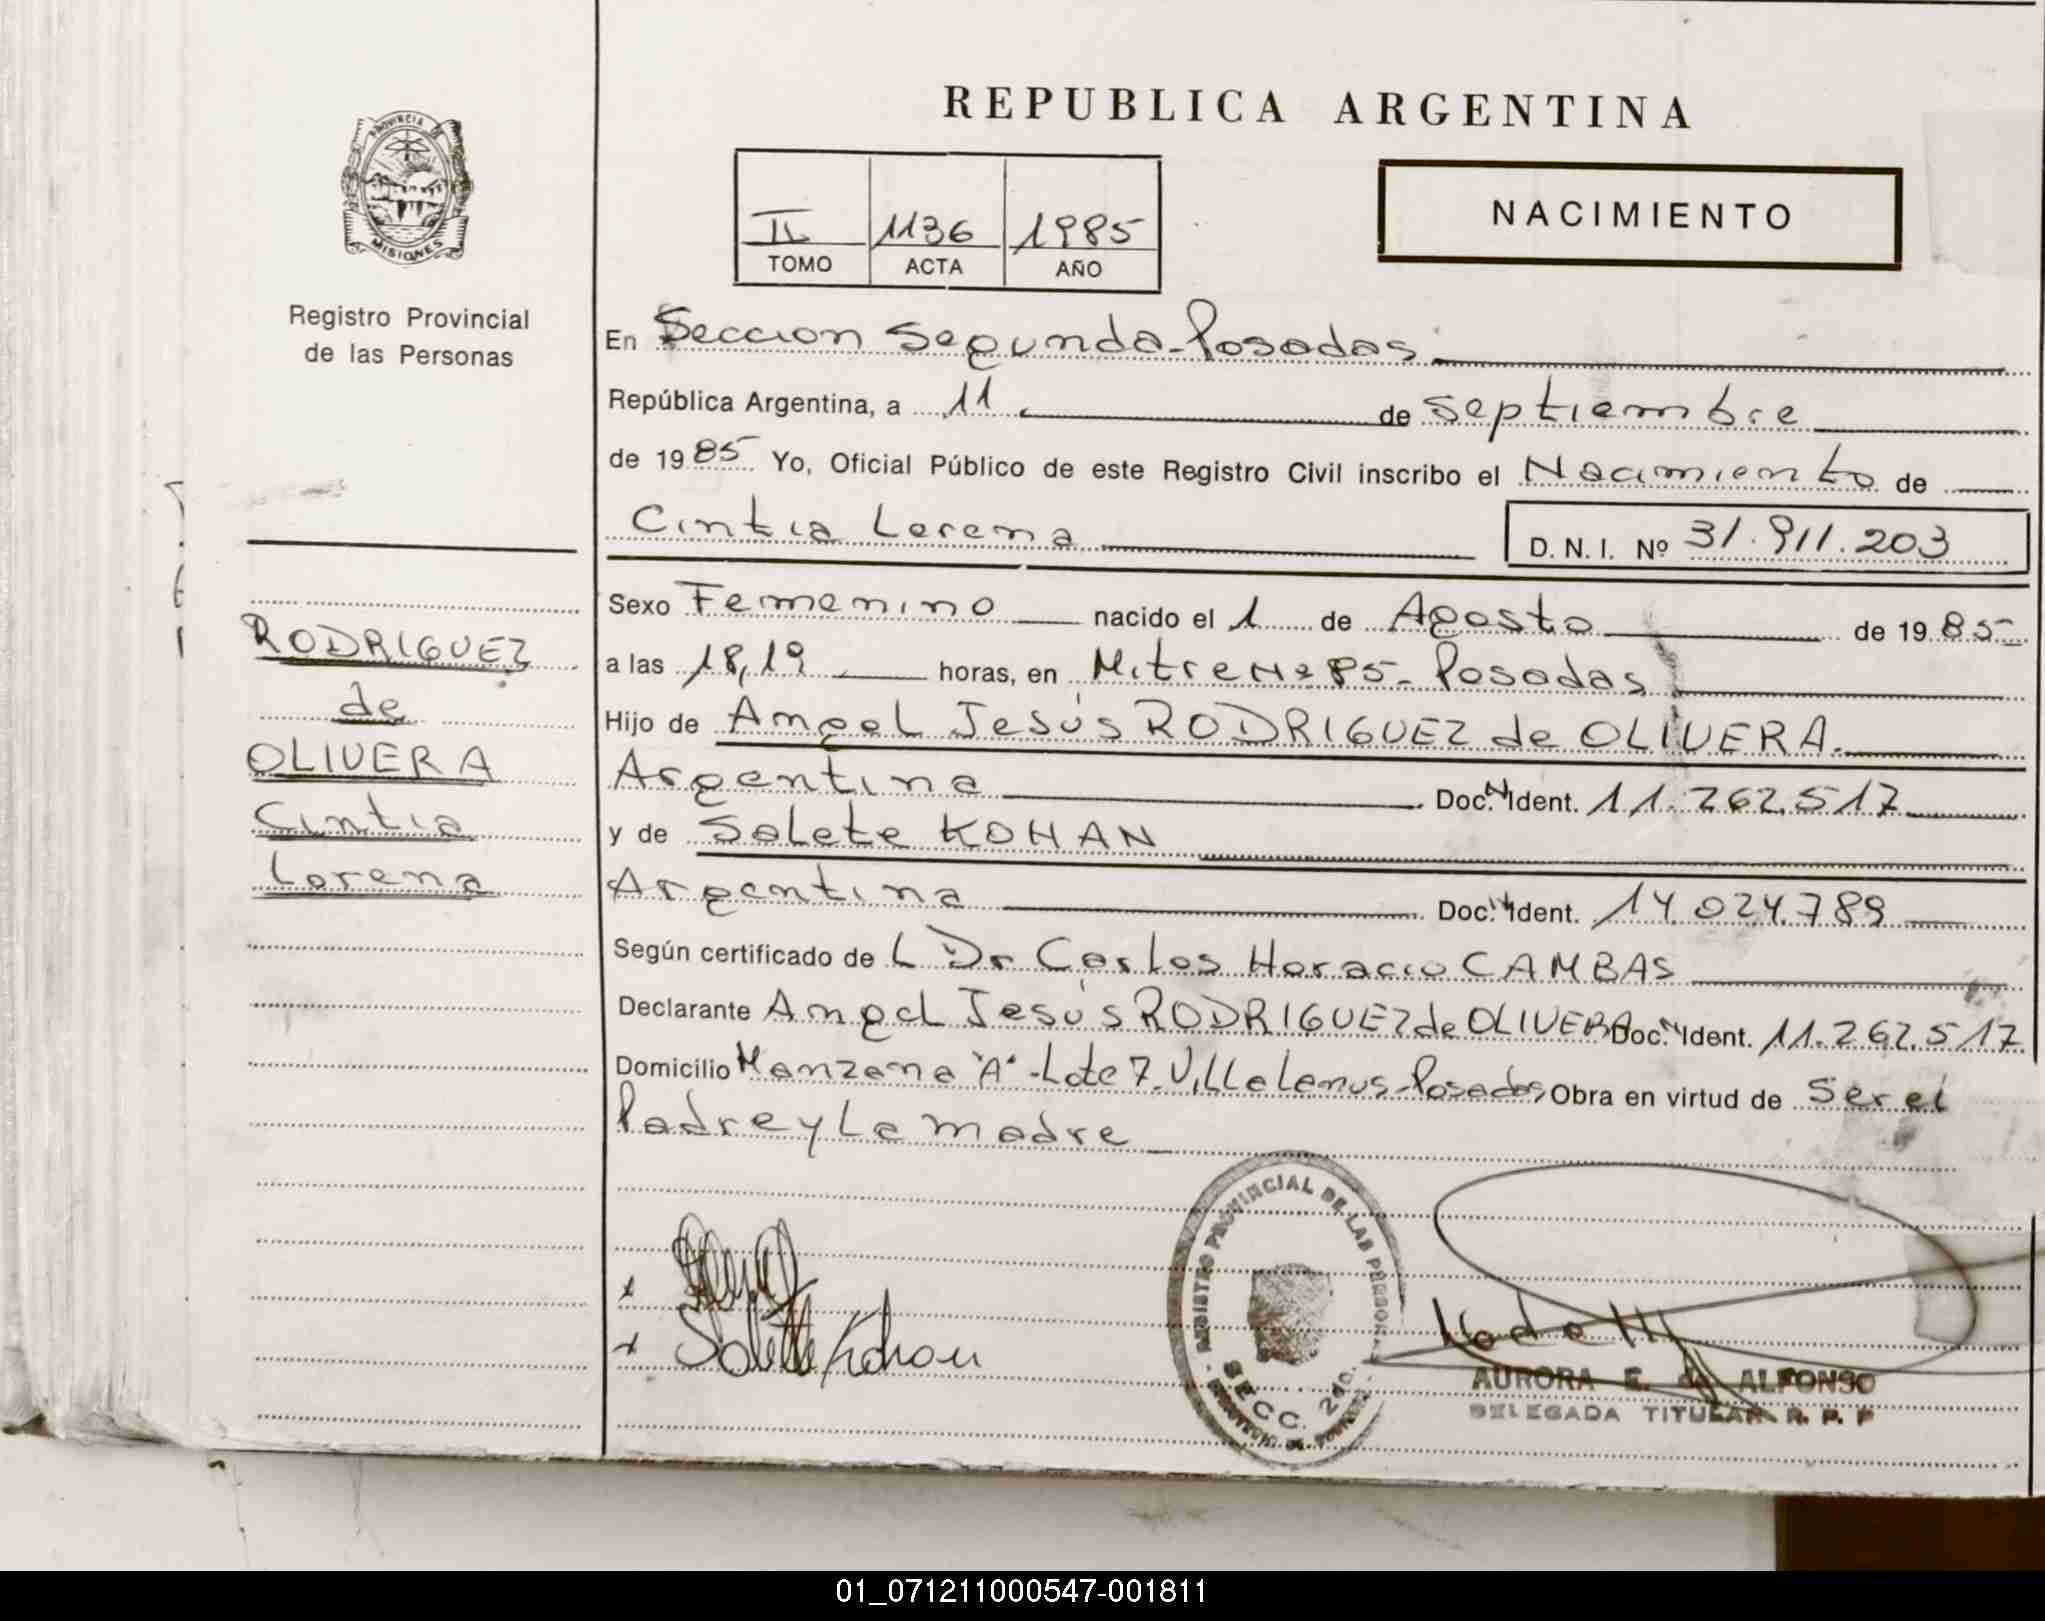 REPUBLICA ARGENTINA
PROVINCIA DE
MISIONES
Registro Provincial
de las Personas
II 1136 1985
TOMO ACTA AÑO
NACIMIENTO
En Seccion Segunda-Posadas
República Argentina, a 11 de Septiembre
de 1985 Yo, Oficial Público de este Registro Civil inscribo el Nacimiento de
Cintia Lorena D. N. I. Nº 31.911.203
Sexo Femenino nacido el 1 de Agosto de 1985
a las 18,19 horas, en Mitre Nº 85- Posadas
Hijo de Angel Jesús RODRIGUEZ de OLIVERA.
Argentina Doc. Ident. 11.262.517
y de Salete KOHAN
Argentina Doc. Ident. 14.024.789
Según certificado de L Dr Carlos Horacio CAMBAS
Declarante Angel Jesús RODRIGUEZ de OLIVERA Doc. Ident. 11.262.517
Domicilio Manzana "A"-Lote 7-Villa Lanus-Posadas Obra en virtud de Ser el
Padre y La madre
RODRIGUEZ
de
OLIVERA
Cintia
Lorena
x
x Salette Kohan
REGISTRO PROVINCIAL DE LAS PERSONAS
SECC. 2da.
AURORA E. de ALFONSO
DELEGADA TITULAR R. P. P
01_071211000547-001811